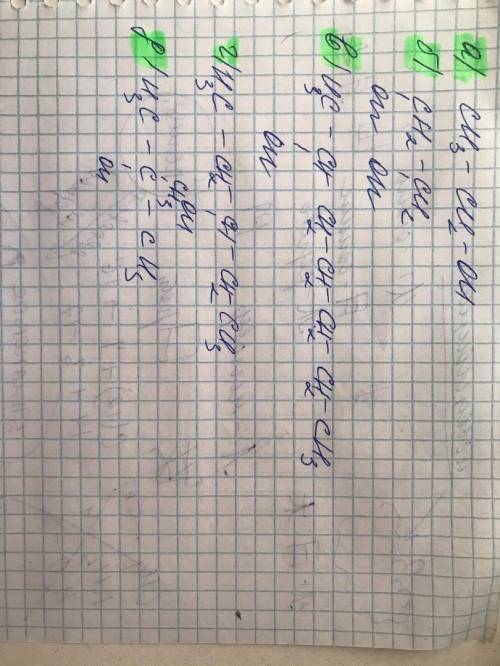 а) CH₃ – CH₂ – OH
б) CH₂ – CH₂
OH OH
в) H₃C – CH – CH₂ – CH₂ – CH₂ – CH₂ – CH₃
OH
г) H₃C – CH₂ – CH – CH₂ – CH₃
OH
CH₃
д) H₃C – C – CH₃
OH